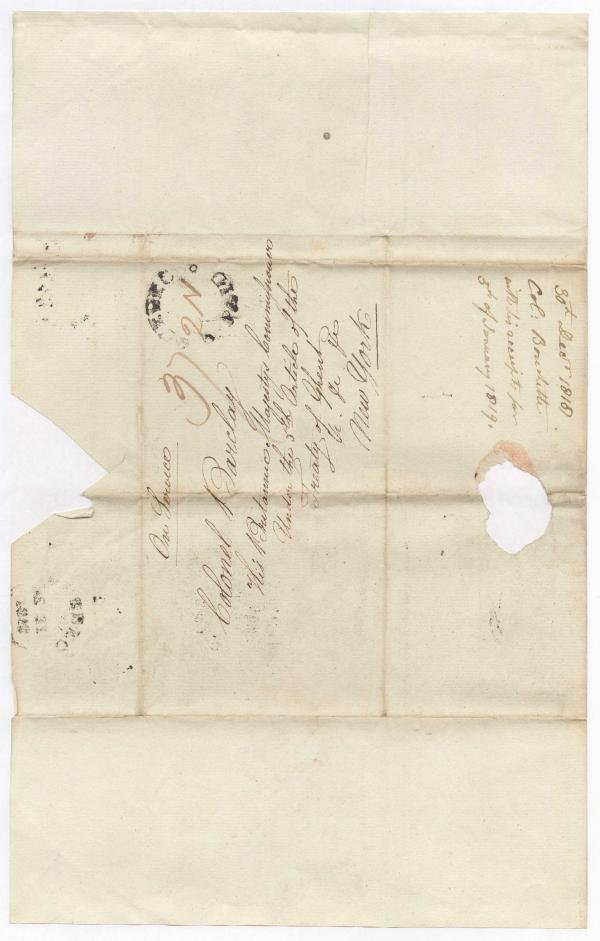 On Service
Colonel Barclay
His Britannic Majestys Commissioner
Under the 5th Article of the
Treaty of Ghent
&c &c &c
New York
30th Decr 1818
Col: Bouchette
with his accounts for
of January 1819.